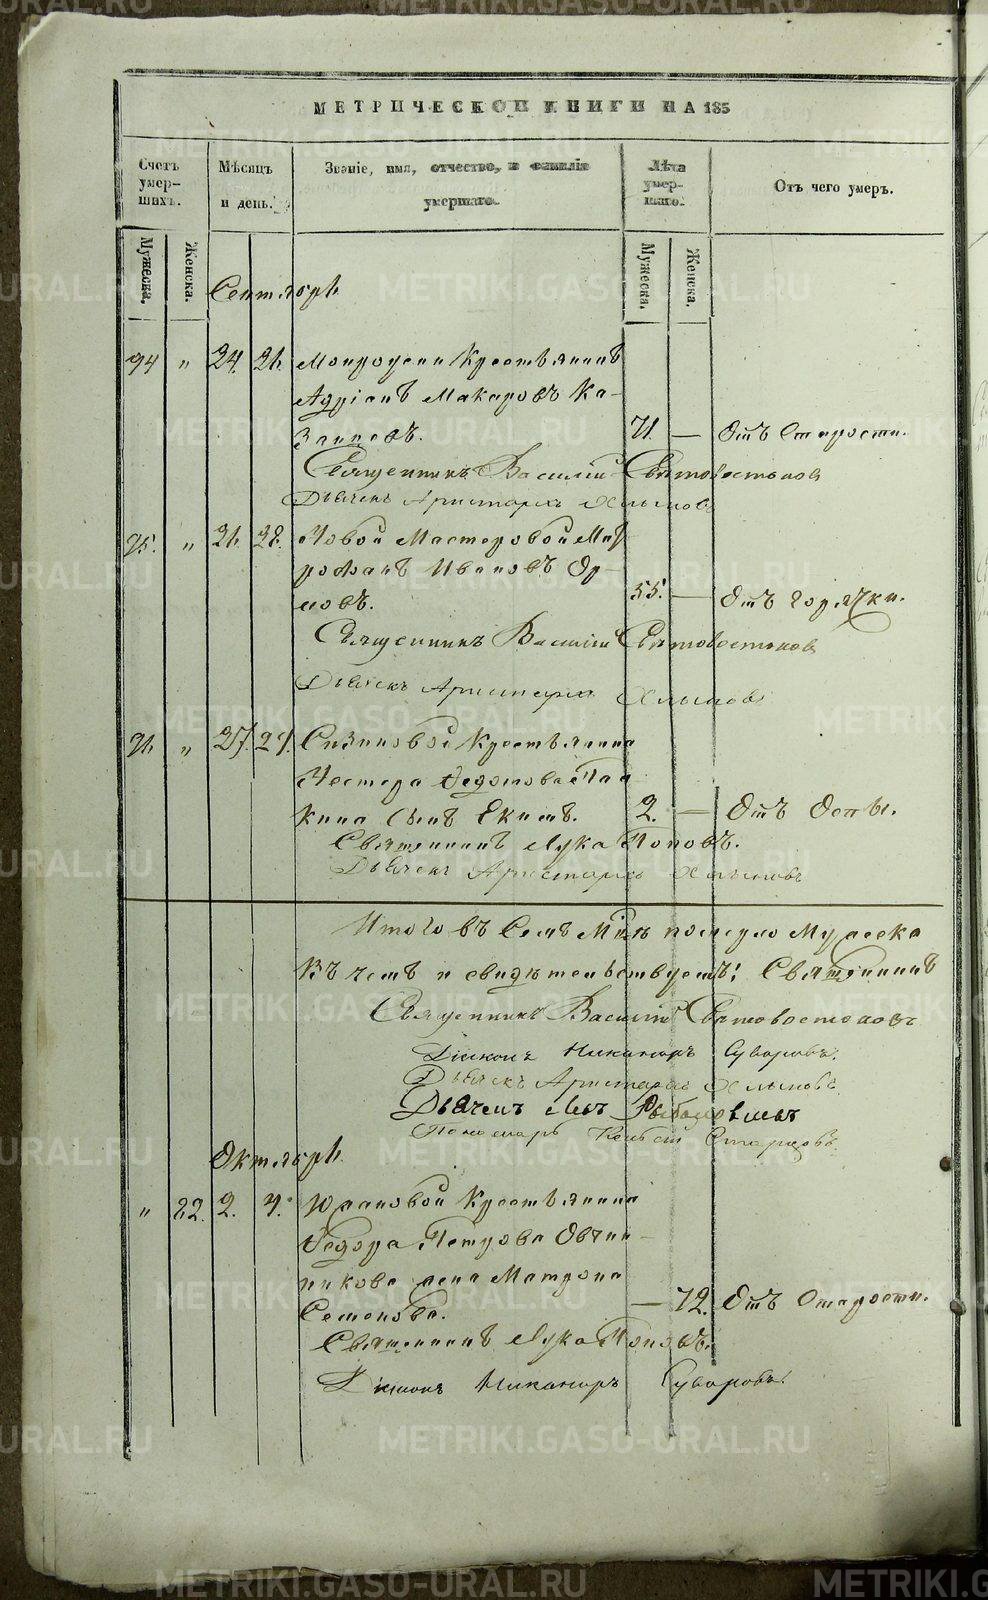 МЕТРИЧЕСКОЙ КНИГИ НА 185
Счетъ умер-шихъ.
Мѣсяцъ и день.
Званіе, имя, отчество, и фамилія умершаго.
Лѣта умер-шаго.
Отъ чего умеръ.
Мужеска.
Женска.
Мужеска.
Женска.
Сентябрь
94 " 24. 26. Крестьянинъ
Адріанъ Макаровъ Ка-
занцовъ. 71. — Отъ Старости.
Священникъ Василій Святовостоковъ
Дьячекъ Аристархъ Хлыновъ
95. " 26. 28. Мастеровой Мит
рофанъ Ивановъ Ор-
ловъ. 55. — Отъ Горячки.
Священникъ Василій Святовостоковъ
Дьячекъ Аристархъ Хлыновъ
96. " 27. 29. Крестьянина
Нестера Федотова
кина Сынъ Екимъ. 2. — Отъ Оспы.
Священникъ Лука Поповъ.
Дьячекъ Аристархъ Хлыновъ
Итого въ Семъ М-цѣ померло Мужеска
Въ чемъ и свидѣтельствуемъ: Священникъ
Священникъ Василій Святовостоковъ
Діаконъ Никаноръ Суворовъ.
Дьячекъ Аристархъ Хлыновъ
Дьячекъ
Пономарь
Октябрь
" 22. 2. 4. Крестьянина
Федора Петрова Овчин-
никова жена Матрона
Семенова. — 72. Отъ Старости.
Священникъ Лука Поповъ.
Діаконъ Никаноръ Суворовъ.
METRIKI.GASO-URAL.RU